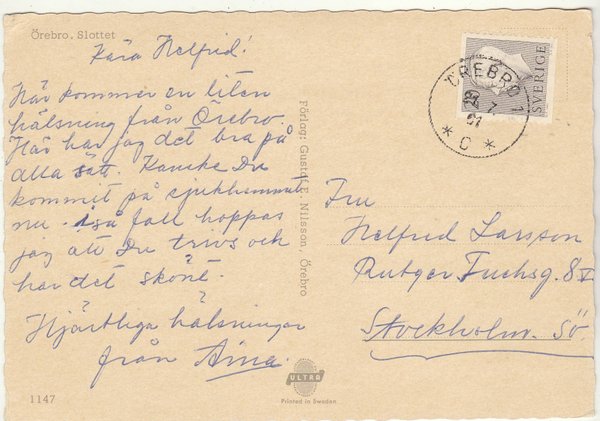 Örebro. Slottet
Kära Helfrid!
Här kommer en liten
hälsning från Örebro.
Här har jag det bra på
alla sätt. Kanske Du
kommit på sjukhemmet
nu. i så fall hoppas
jag att Du trivs och
har det skönt.
Hjärtliga hälsningar
från Aina.
1147
Förlag: Gustaf E. Nilsson, Örebro
ULTRA
Printed in Sweden
SVERIGE
ÖREBRO 1
7.
* C *
Fru
Helfrid Larsson
Rutger Fuchsg. 8
Stockholm. Sö.